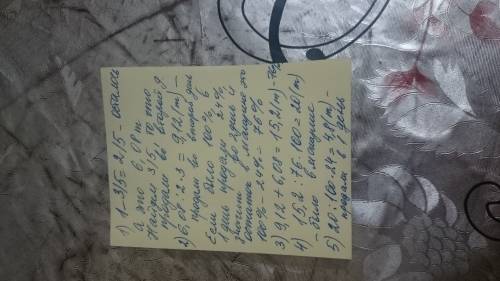 1) 1-3/5=2/5- осталось
а это 6,08 т
Найдем 3/5, то, что
продали во второй д
2) 6,08 : 2·3 = 9,12 (т) -
продали во второй день
Если было 100%, в
1 день продали 24%
значит во 2 день и
остаток в магазине это
100% - 24% = 76%
3) 9,12 + 6,08 = 15,2 (т) - 76%
4) 15,2 : 76·100 = 20 (т)
- было в магазине
5) 20 : 100·24 = 4,8 (т) -
продали в 1 день